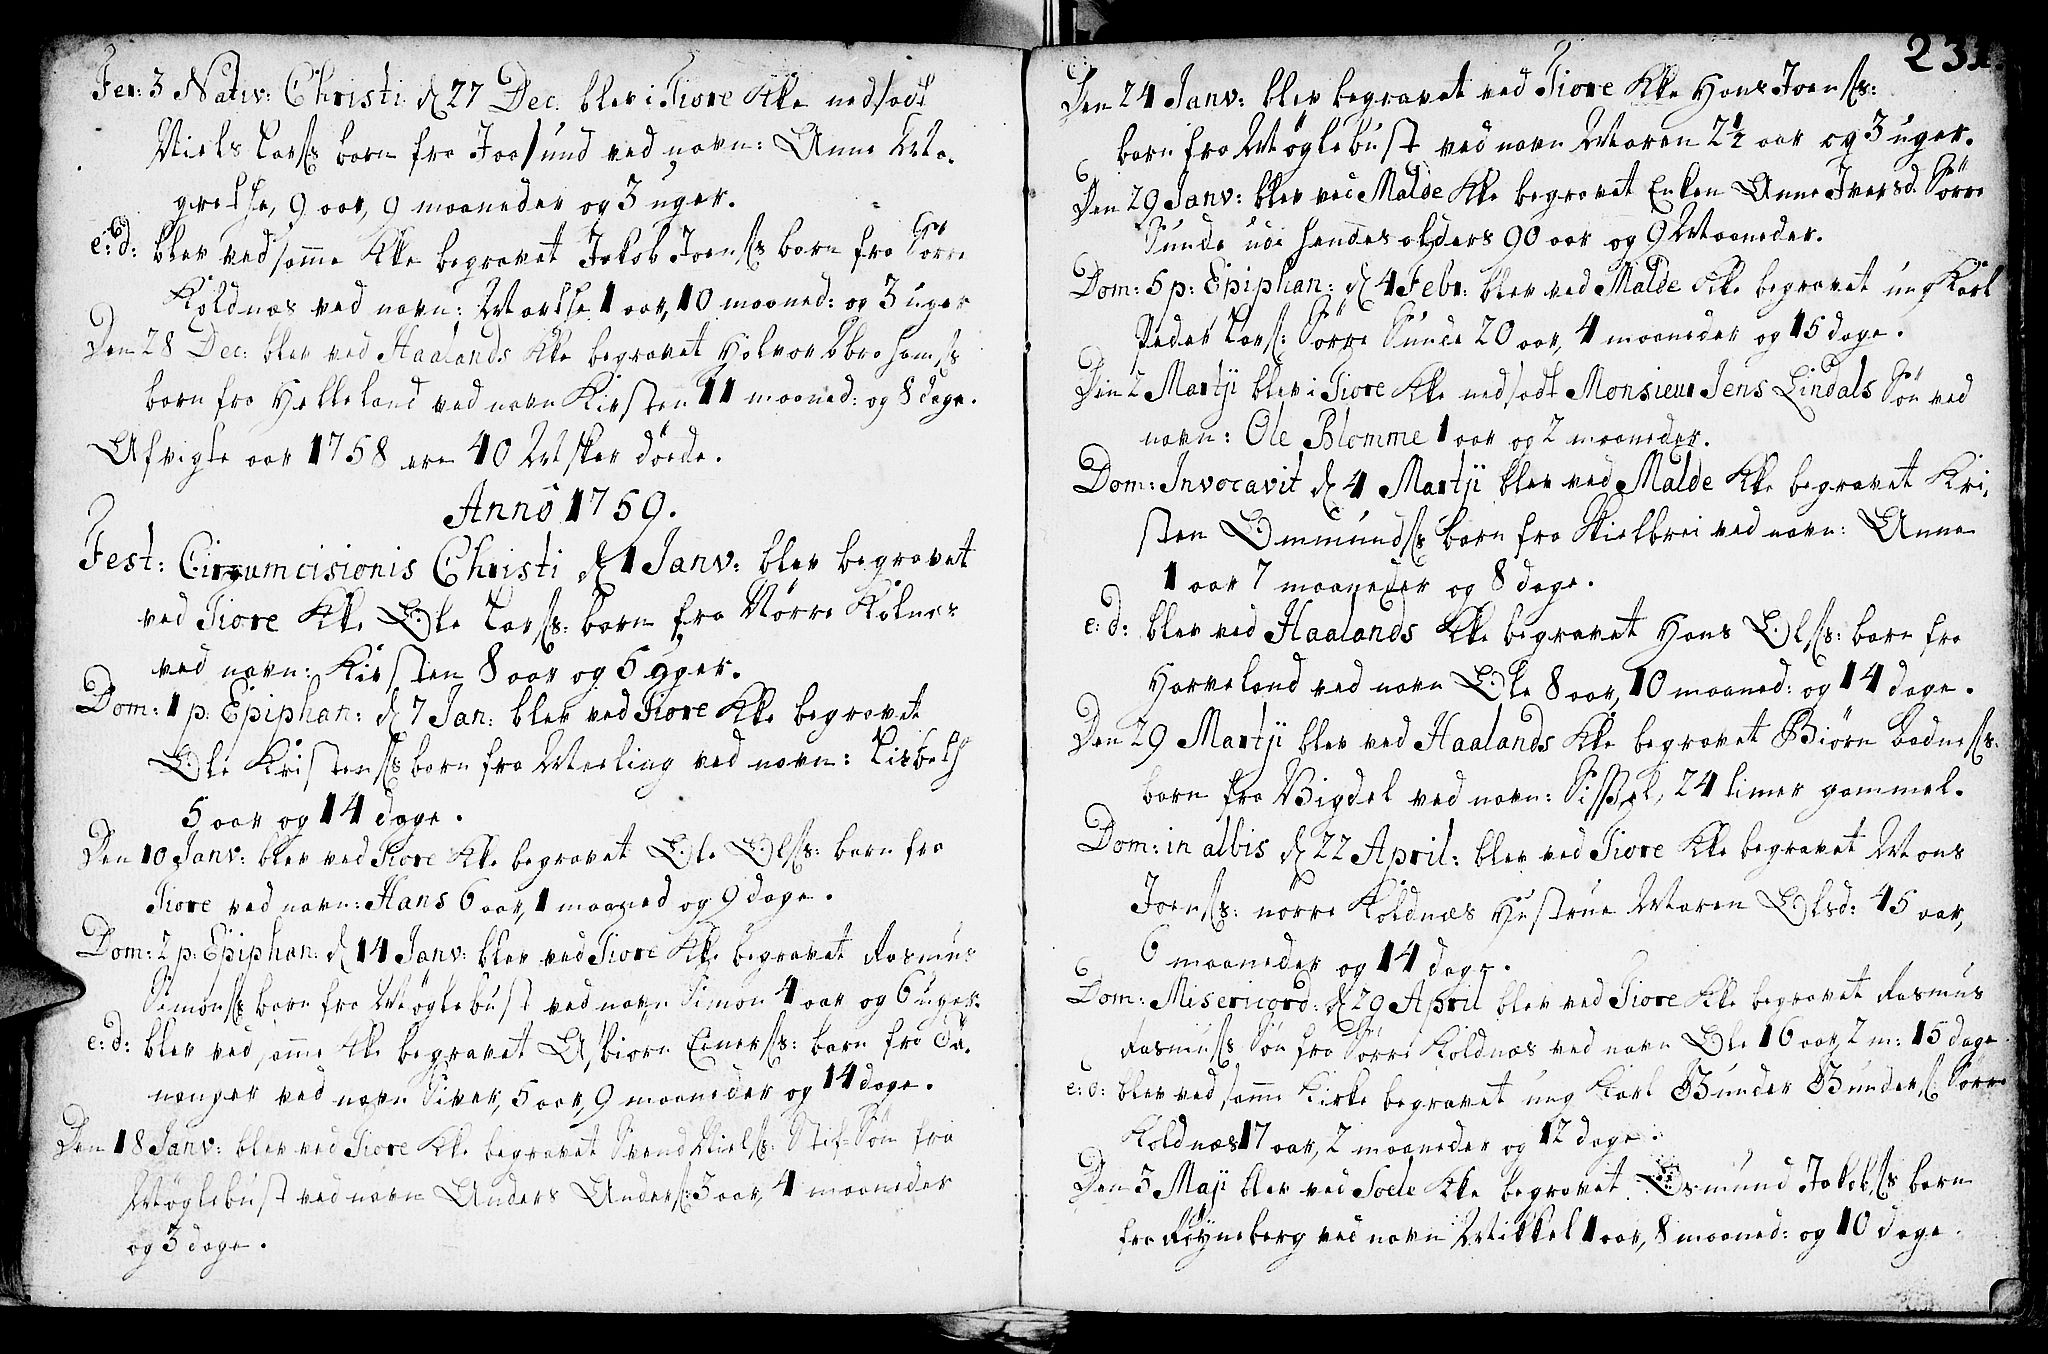 Fer: 3 Nativ: Christi d 27 Dec. blev i Tiore Kke nedsadt
Niels Lars: barn fra Joasund ved navn: Anne Ma-
grethe, 9 aar, 9 maaneder og 3 uger.
e: d: blev ved samme Kke begravet Jakob Joens: barn fra Sörre
Koldnæs ved navn: Marthe 1 aar, 10 maaned: og 3 uger
Den 28 Dec: blev ved Haalands Kke begravet Halvor Abrahams:
barn fra Helleland ved navn Kirsten 11 maaned: og 8 dage.
Afvigte aar 1758 ere 40 Msker döede.
Anno 1759.
Fest: Circumcisionis Christi d 1 Janv: blev begravet
ved Tiore Kke Ole Lars: barn fra Nörre Kolnes
ved navn: Kirsten 8 aar og 5 uger.
Dom: 1 p: Epiphan: d 7 Jan: blev ved Tiore Kke begravet
Ole Kristens: barn fra Meeling ved navn: Lisbeth
5 aar og 14 dage.
Den 10 Janv: blev ved Tiore Kke begravet Ole Ols: barn fra
Tiore ved navn: Hans 6 aar, 1 maaned og 9 dage.
Dom: 2 p: Epiphan: d 14 Janv: blev ved Tiore Kke begravet Rasmus
Simons: barn fra Möglebust ved navn Simon 4 aar og 6 uger.
e: d: blev ved samme Kke begravet Asbiörn Einers: barn fra Ta-
nanger ved navn Siver, 5 aar, 9 maaneder og 14 dage.
Den 18 Janv: blev ved Tiore Kke begravet Svend Niels: Stif-Sön fra
Möglebust ved navn Anders Anders: 5 aar, 4 maaneder
og 3 dage.
231
Den 24 Janv: blev begravet ved Tiore Kke Hans Joens:
barn fra Möglebust ved navn Maren 2 1/2 aar og 3 uger.
Den 29 Janv: blev ved Malde Kke begravet Enken Anne Iversd. Sörre
Sunde udi hendes alders 90 aar og 9 Maaneder.
Dom: 5 p: Epiphan: d 4 Febr: blev ved Malde Kke begravet ung Karl
Peder Lars: Sörre Sunde 20 aar, 4 maaneder og 15 dage.
Den 2 Martji blev i Tiore Kke nedsadt Monsieur Jens Lindals Sön ved
navn: Ole Blomme 1 aar og 2 maaneder.
Dom: Invocavit d 4 Martji blev ved Malde Kke begravet Kri-
sten Ommunds: barn fra Kielbrei ved navn: Anne
1 aar 7 maaneder og 8 dage.
e: d: blev ved Haalands Kke begravet Hans Ols: barn fra
Harveland ved navn Ole 8 aar, 10 maaned: og 14 dage.
Den 29 Martji blev ved Haalands Kke begravet Biörn Bodnes:
barn fra Vigdel ved navn: Sissel, 24 timer gammel.
Dom: in albis d 22 April: blev ved Tiore Kke begravet Mons
Joens: nörre Koldnæs Hustrue Maren Olsd: 45 aar,
6 maaneder og 14 dage.
Dom: Misericord: d 29 April blev ved Tiore Kke begravet Rasmus
Rasmus: Sön fra Sörre Koldnæs ved navn Ole 16 aar 2 m: 15 dage
e: d: blev ved samme Kirke begravet ung Karl Gunder Gunders: Sörre
Koldnæs 17 aar, 2 maaneder og 12 dage.
Den 3 Maji blev ved Soele Kke begravet Osmund Jakobs: barn
fra Röyneberg ved navn Mikkel 1 aar, 8 maaned: og 10 dage.